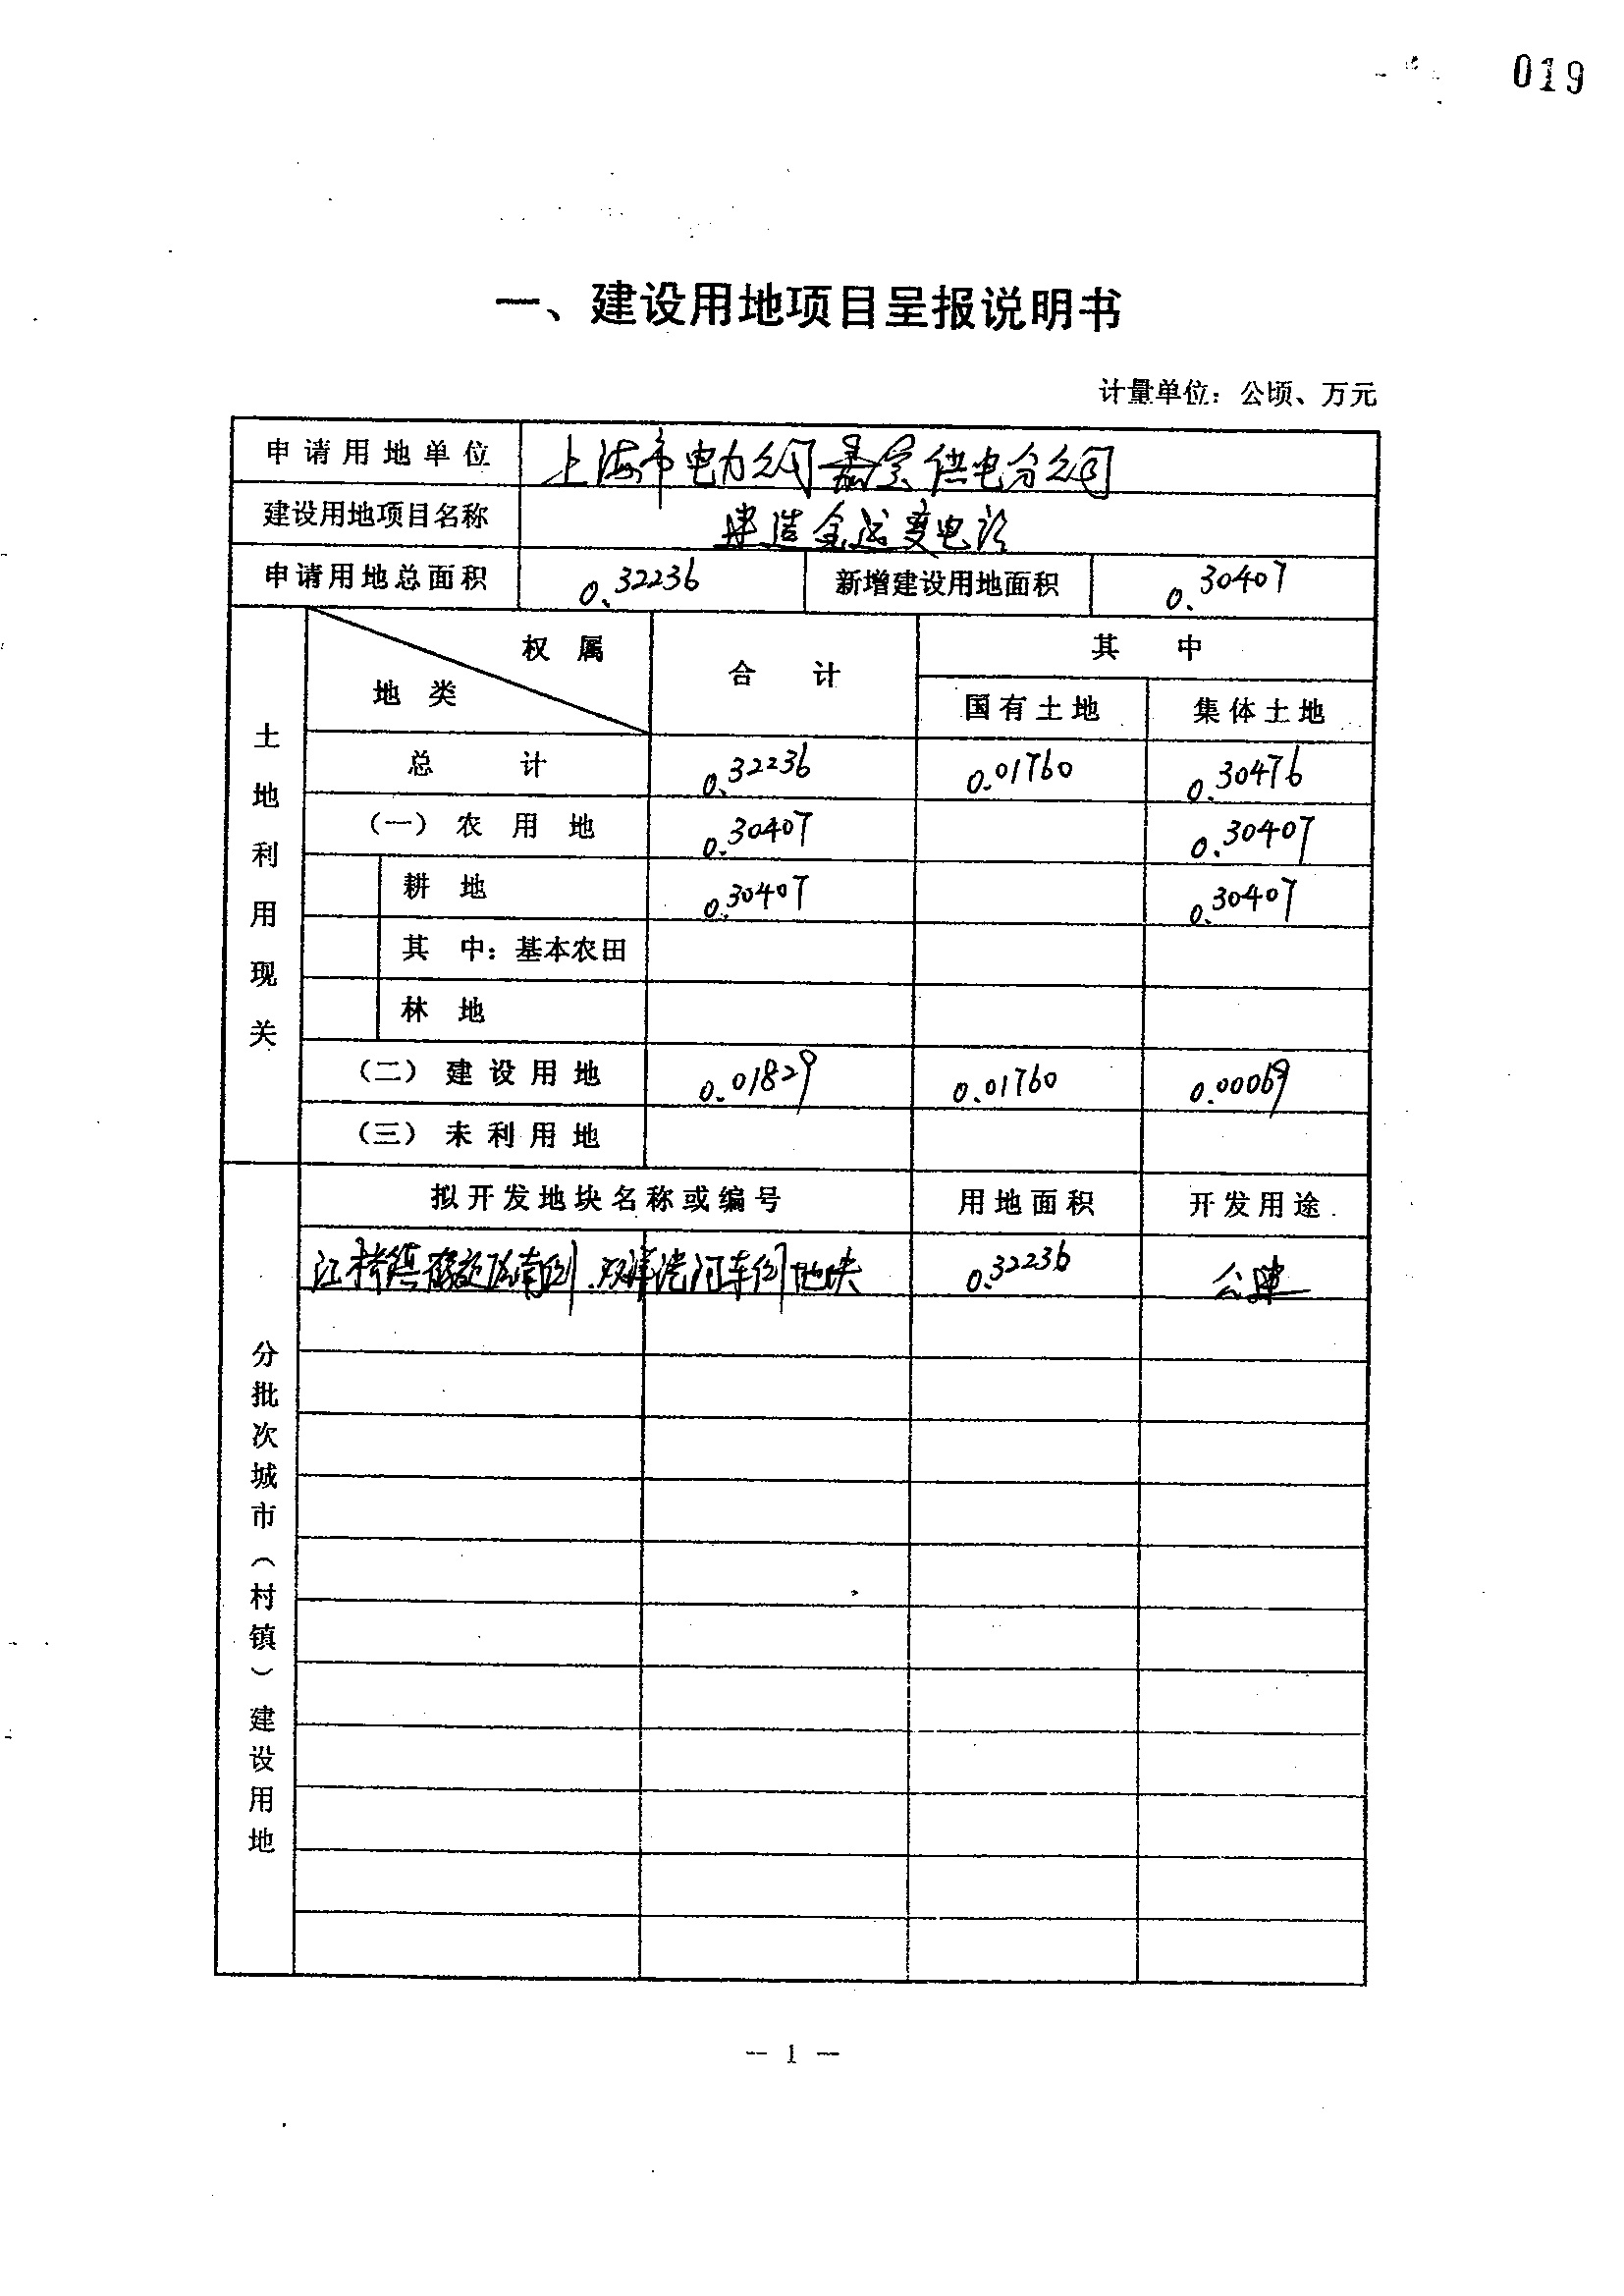 019
一、建设用地项目呈报说明书
计量单位：公顷、万元
申请用地单位 上海市电力公司嘉定供电分公司
建设用地项目名称 建造金运变电站
申请用地总面积 0.32236 新增建设用地面积 0.30407
土地利用现关
权属 地类 合计 其中
国有土地 集体土地
总计 0.32236 0.01760 0.30476
（一）农用地 0.30407 0.30407
耕地 0.30407 0.30407
其中：基本农田
林地
（二）建设用地 0.01829 0.01760 0.00069
（三）未利用地
分批次城市（村镇）建设用地
拟开发地块名称或编号 用地面积 开发用途
江桥镇 南侧 河东侧地块 0.32236 公建
— 1 —